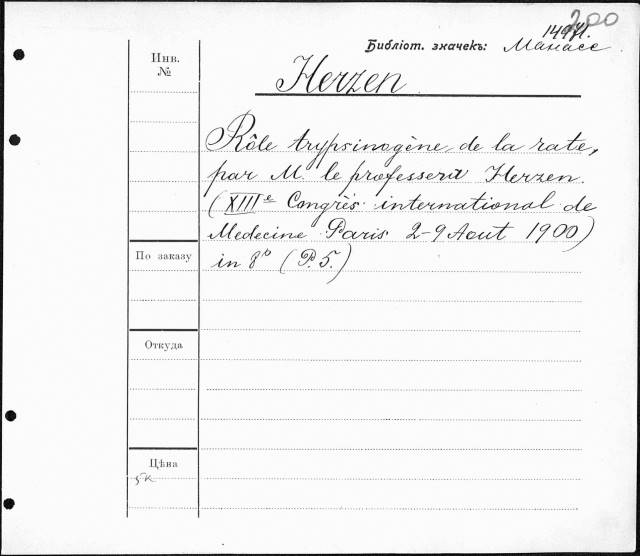 200
Библіот. значекъ: Манассе
Инв.
№
Herzen
Rôle trypsinogène de la rate,
par M. le professeur Herzen.
(XIIIe Congrès international de
Medecine Paris 2-9 Aout 1900)
По заказу
in 8º (P. 5.)
Откуда
Цѣна
5к